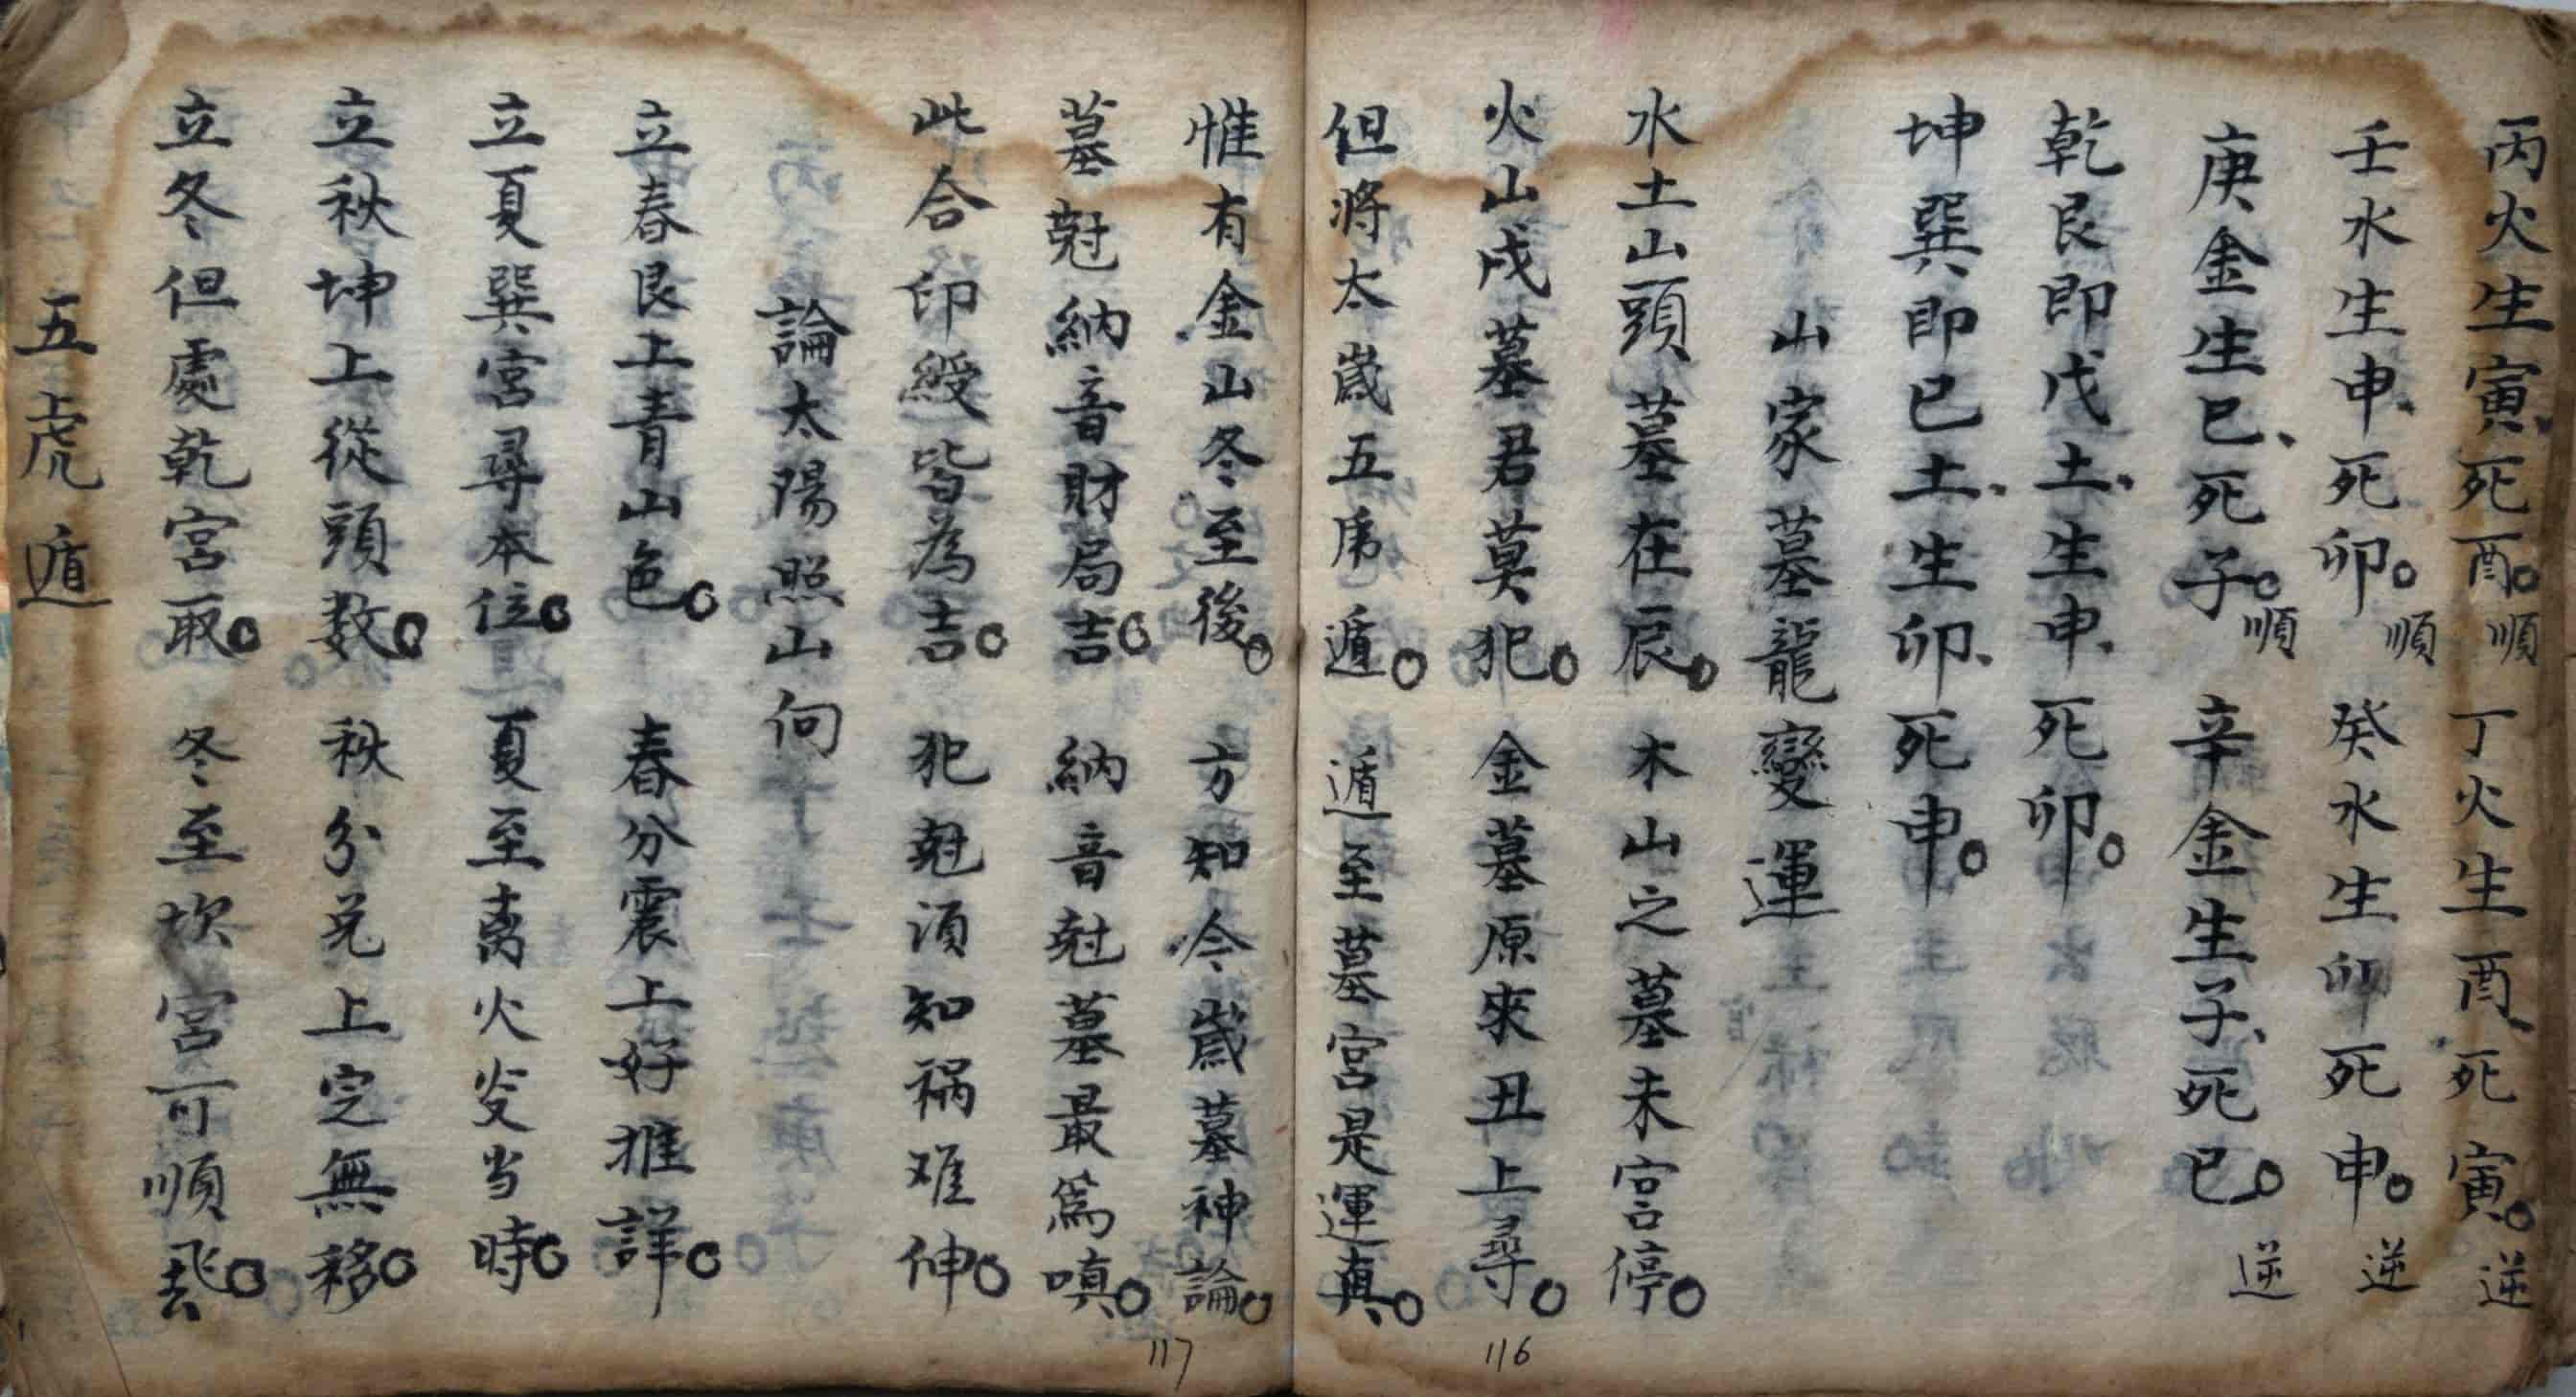 丙火生寅、死酉。順　丁火生酉、死寅。逆
壬水生申、死卯。順　癸水生卯死申。逆
庚金生巳、死子。順　辛金生子、死巳。逆
乾艮即戊土、生申、死卯。
坤巽即巳土、生卯、死申。
山家墓龍變運
水土山頭墓在辰。木山之墓未宮停。
火山戌墓君莫犯。金墓原來丑上尋。
但將太歲五虎遁。遁至墓宮是運真。
116
惟有金山冬至後。方知今歲墓神論。
墓尅納音財局吉。納音尅墓最為嗔。
此合印綬皆為吉。犯尅須知禍难伸。
論太陽照山向
立春艮上青山色。春分震上好推詳。
立夏巽宮尋本位。夏至离火炎当時。
立秋坤上從頭数。秋分兑上定無移。
立冬但處乾宮取。冬至坎宮可順飛去。
五虎遁
117